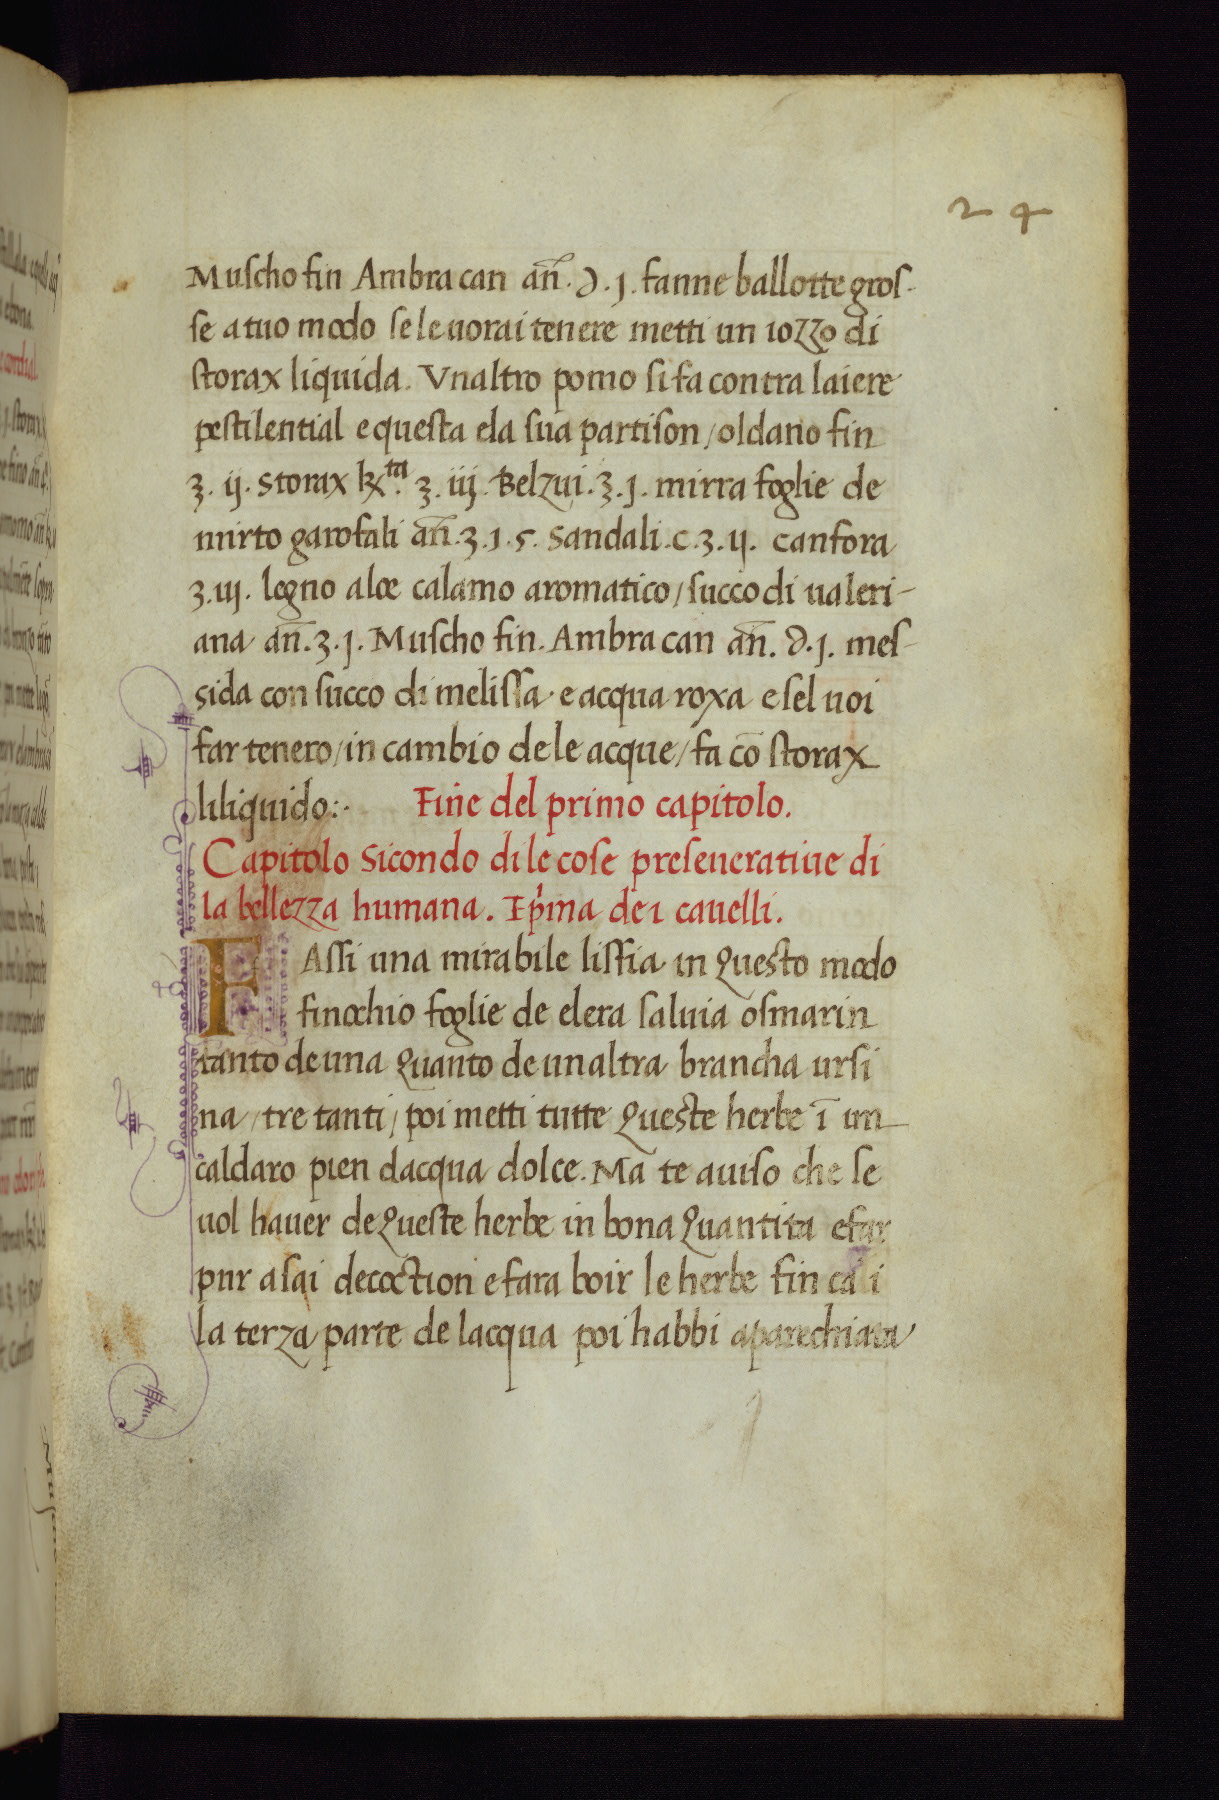 24
Muſcho fin Ambracan an̄. ∂. j. fanne ballotte groſ-
ſe a tuo modo ſe le uorai tenere metti un iozzo di
ſtorax liquida. Vnaltro pomo ſi fa contra laiere
peſtilential e queſta e la ſua partiſon / oldano fin
ʒ. ij. storax k℞ta ʒ. iij. Belzui. ʒ. j. mirra foglie de
mirto garofali an̄. ʒ. 1. 5. Sandali. c. ʒ. ij. canfora
ʒ. iij. legno aloe calamo aromatico / ſucco di ualeri-
ana an̄. ʒ. j. Muſcho fin. Ambracan an̄. ∂. j. meſ-
sida con ſucco di meliſſa e acqua roxa e ſel uoi
far tenero / in cambio de le acque / fa cō ſtorax
liliquido:· Fine del primo capitolo.
Capitolo Sicondo di le coſe preſeueratiue di
la bellezza humana. E p̄ma de i cauelli.
FAſſi una mirabile liſſia in queſto modo
finochio foglie de elera ſaluia oſmarin
tanto de una quanto de unaltra brancha urſi
na / tre tanti / poi metti tutte queſte herbe ī un
caldaro pien dacqua dolce. Ma te auiſo che ſe
uol hauer de queſte herbe in bona quantita e far
pur aſai decoction e fara boir le herbe fin ca i
la terza parte de lacqua poi habbi aparechiata